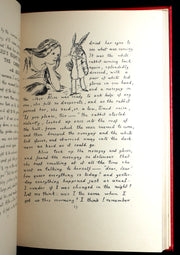 dried her eyes to
see what was coming.
It was the white
rabbit coming back
again, splendidly
dressed, with a
pair of white kid
gloves in one hand,
and a nosegay in
the other. Alice was ready to ask help of any
one, she felt so desperate, and as the rabbit
passed her, she said, in a low, timid voice,
"If you please, Sir—" the rabbit started
violently, looked up once into the roof of
the hall, from which the voice seemed to come,
and then dropped the nosegay and the white
kid gloves, and skurried away into the dark-
ness as hard as it could go.
Alice took up the nosegay and gloves,
and found the nosegay so delicious that
she kept smelling at it all the time she
went on talking to herself—"dear, dear!
how queer everything is today! and yes-
terday everything happened just as usual:
I wonder if I was changed in the night?
Let me think: was I the same when I
got up this morning? I think I remember
13